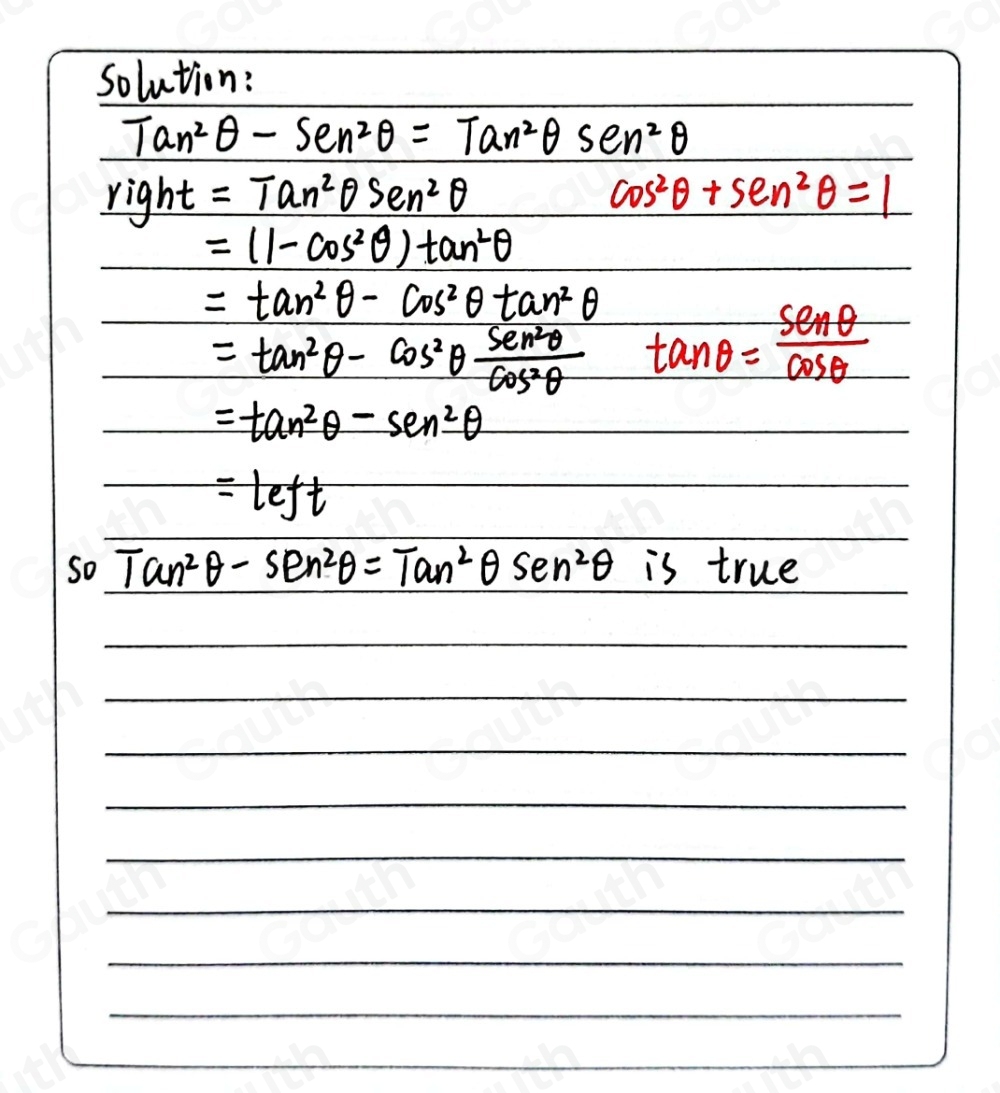 Solution:
Tan²θ - Sen²θ = Tan²θ sen²θ
right = Tan²θ Sen²θ cos²θ + sen²θ = 1
= (1 - cos²θ) tan²θ
= tan²θ - Cos²θ tan²θ
= tan²θ - Cos²θ sen²θ/cos²θ tanθ = senθ/cosθ
= tan²θ - sen²θ
= left
so Tan²θ - sen²θ = Tan²θ sen²θ is true